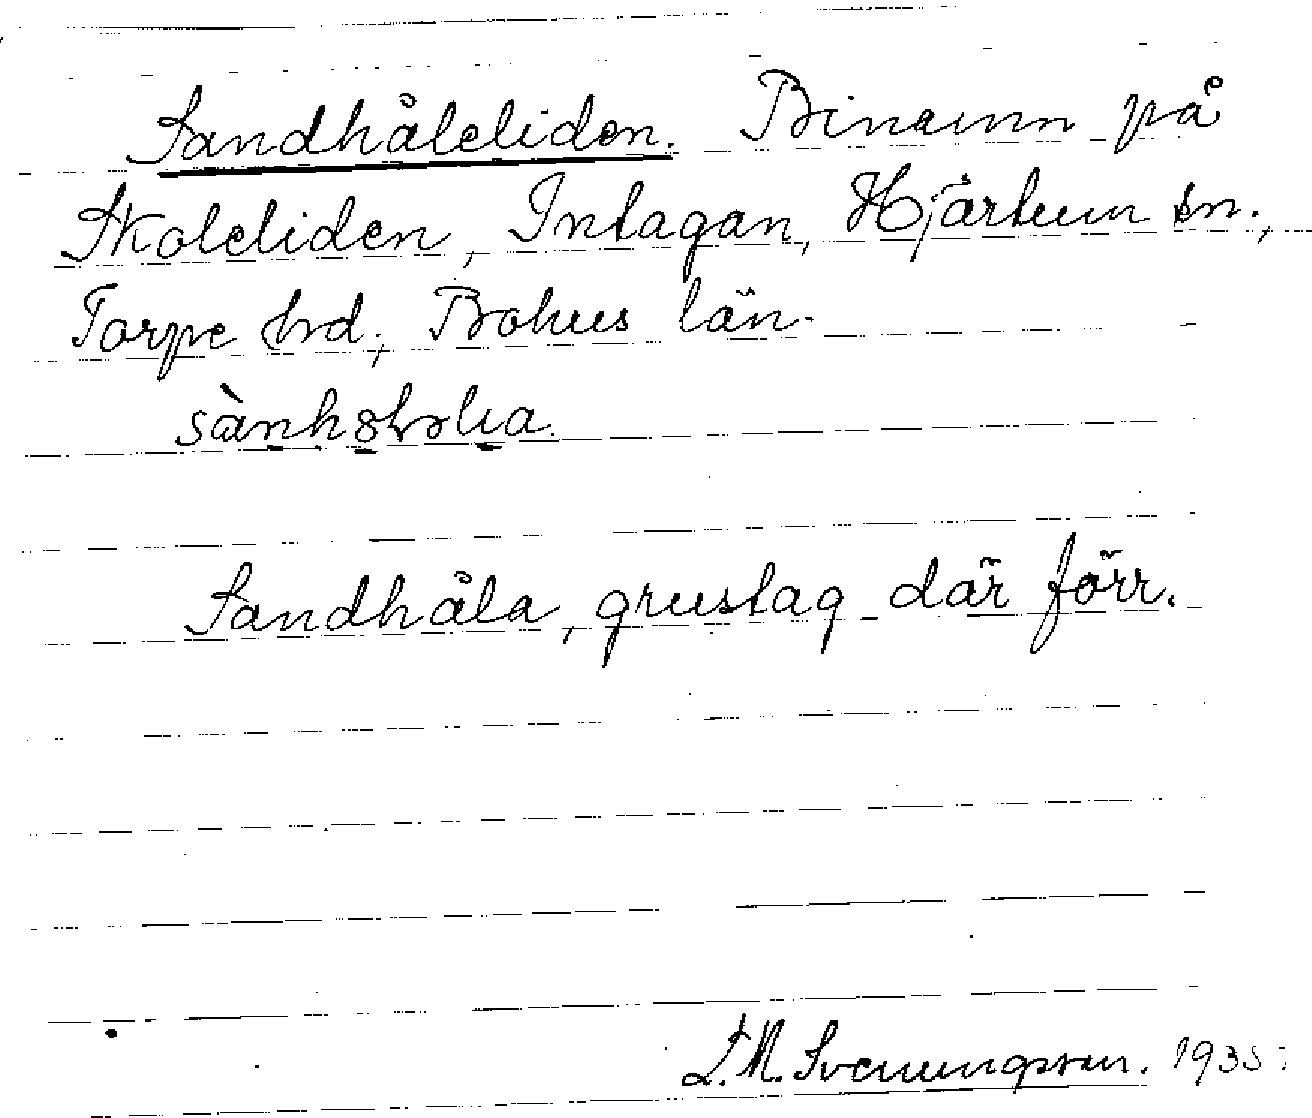 Sandhåleliden. Binamn på
Skoleliden, Intagan, Hjärtum sn.,
Torpe hd, Bohus län.
Sandhåla, grustag där förr.
S. M. Svenungsson. 1935.